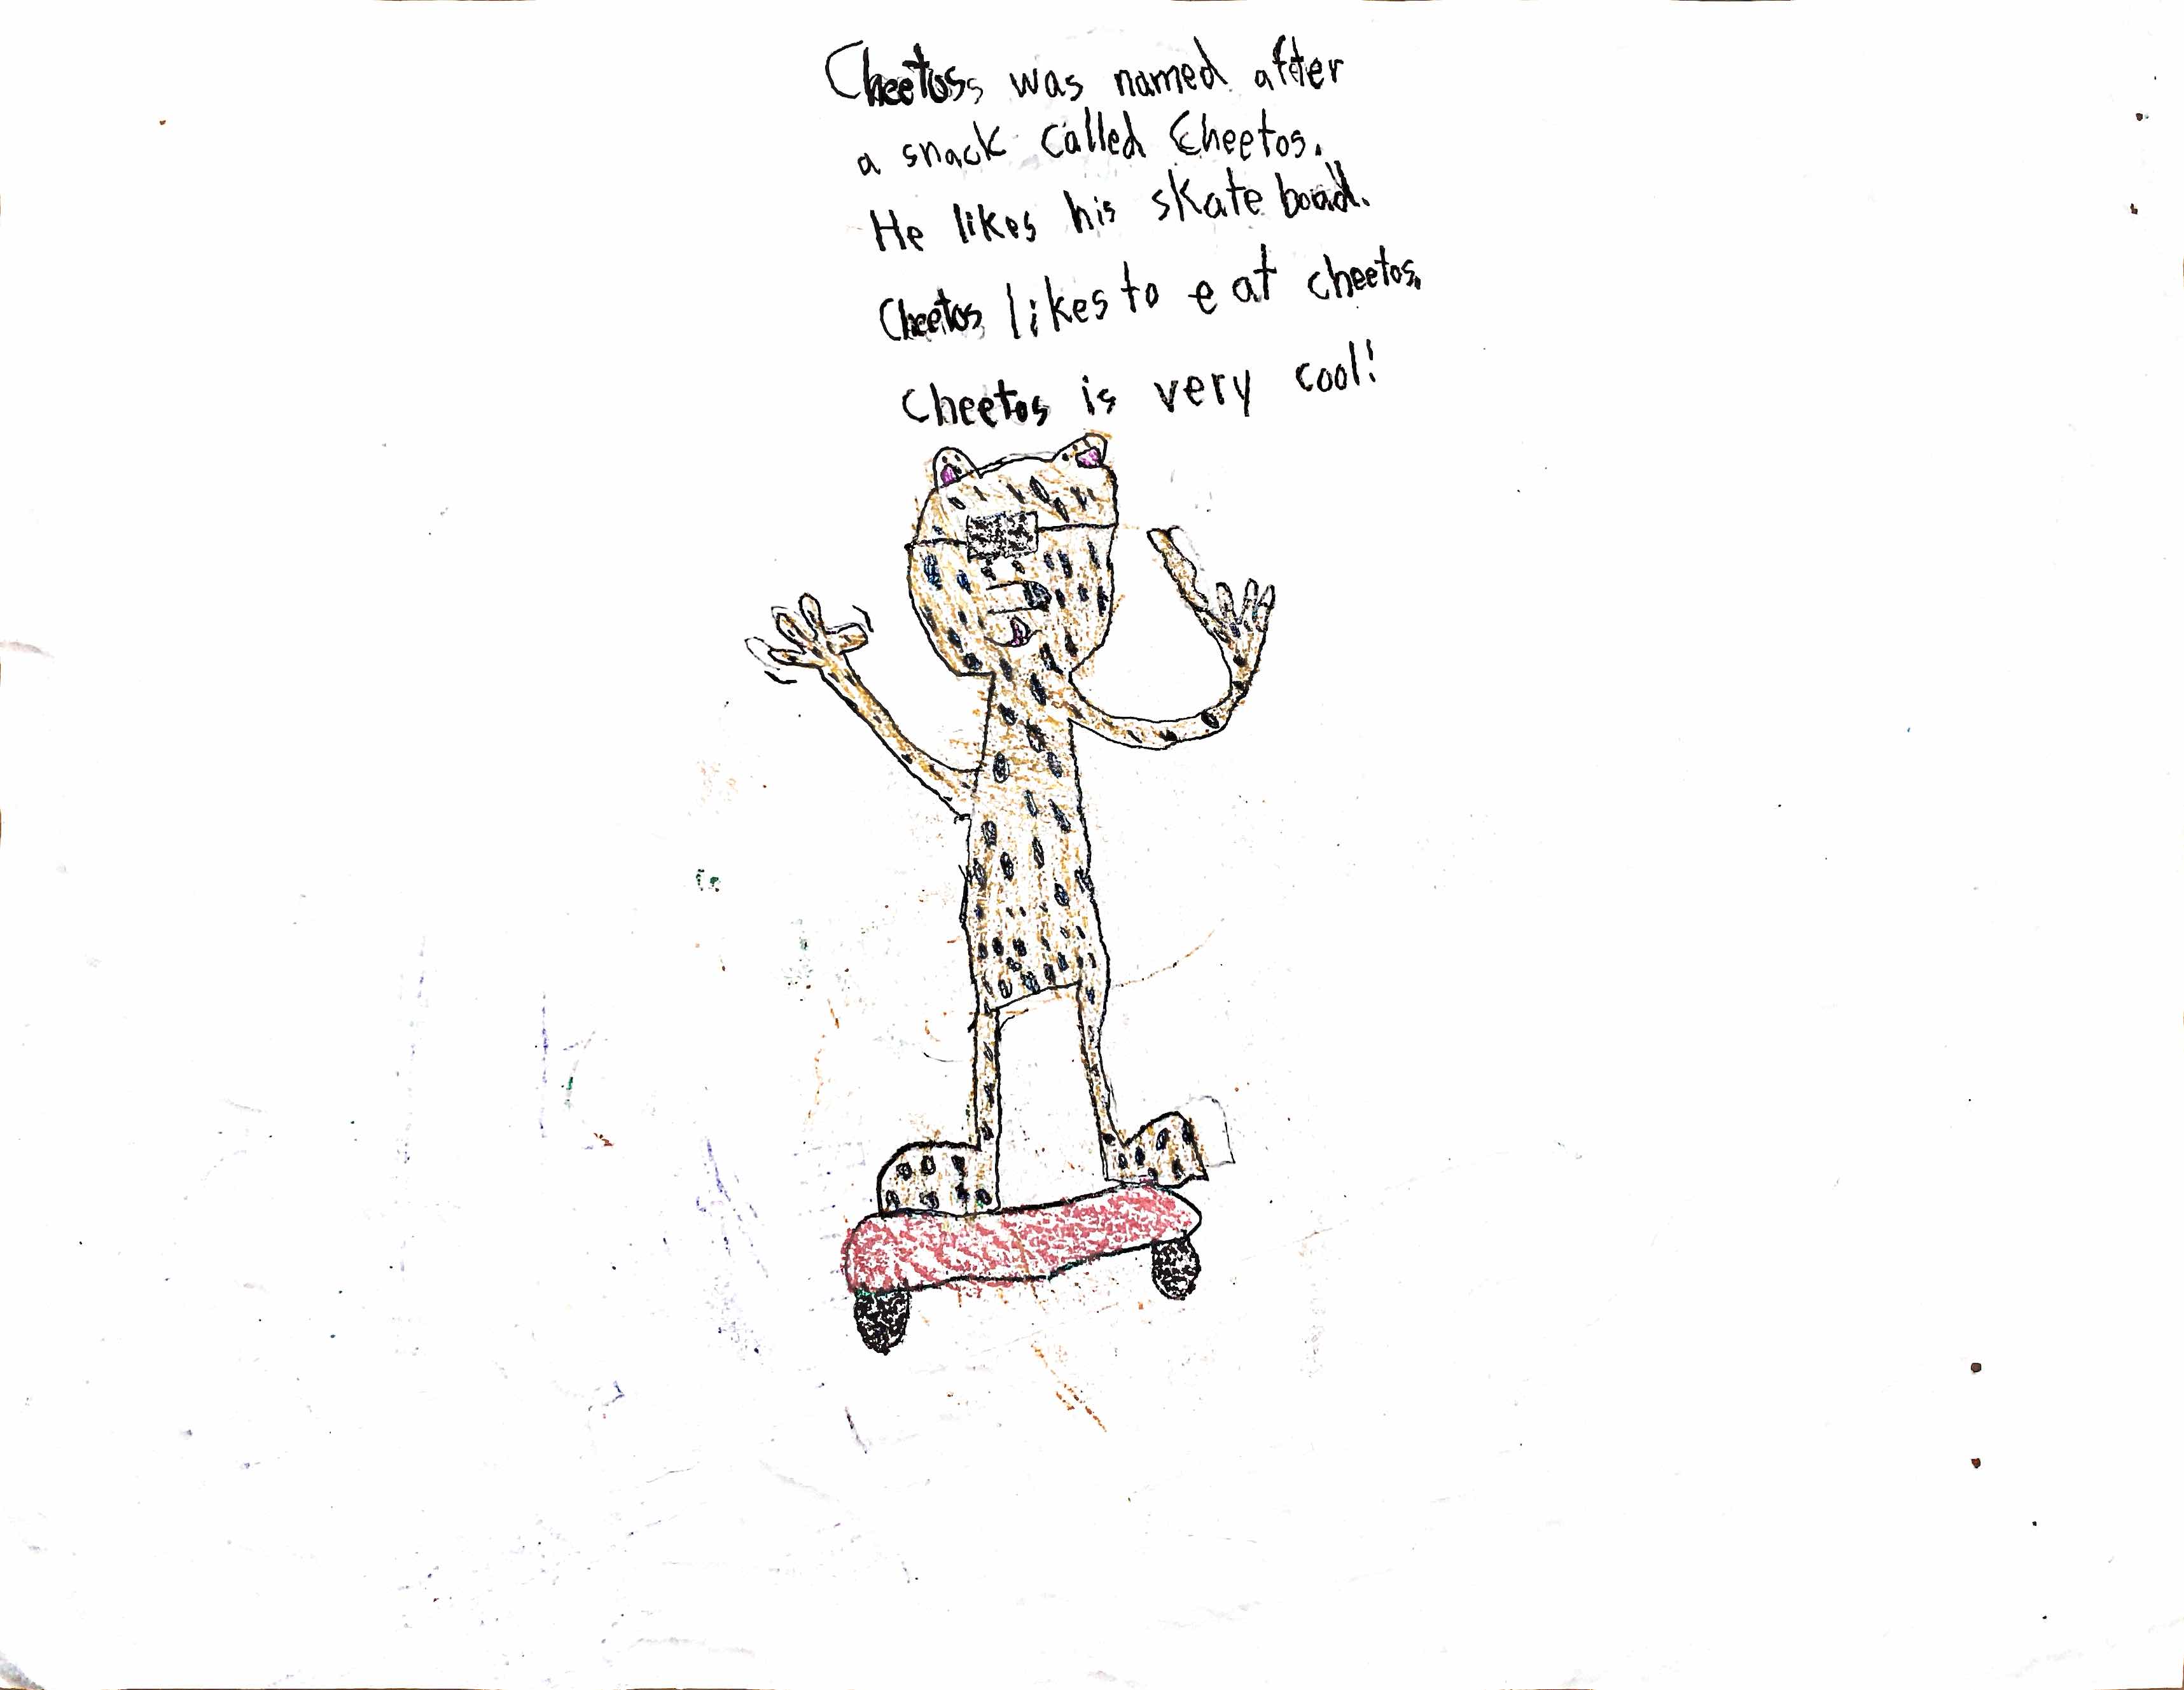 Cheetoss was named after
a snack called Cheetos.
He likes his skate boad.
Cheetos likes to eat cheetos.
Cheetos is very cool!